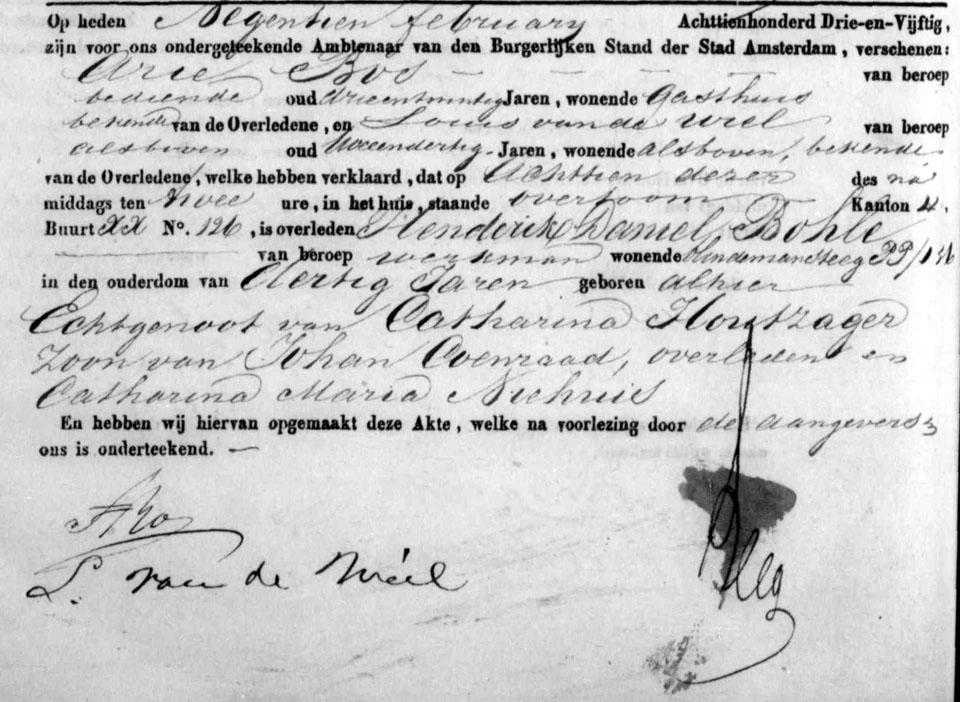 Op heden Negentien february Achttienhonderd Drie-en-Vijftig,
zijn voor ons ondergeteekende Ambtenaar van den Burgerlijken Stand der Stad Amsterdam, verschenen:
Arie Bos van beroep
bediende oud drieentwintig Jaren, wonende Gasthuis
bekende van de Overledene, en Louis van de Wiel van beroep
alsboven oud Jaren, wonende alsboven, bekende
van de Overledene, welke hebben verklaard, dat op Achttien dezer des na
middags ten twee ure, in het huis, staande overtoom Kanton 4,
Buurt XX No. 126, is overleden Henderik Daniel Bohle
van beroep werkman wonende PP/136
in den ouderdom van dertig Jaren geboren alhier
Echtgenoot van Catharina Houtzager
Zoon van Johan Coenraad, overleden en
Catharina Maria Niehuis
En hebben wij hiervan opgemaakt deze Akte, welke na voorlezing door de aangevers &
ons is onderteekend. —
ABos
L. van de Wiel